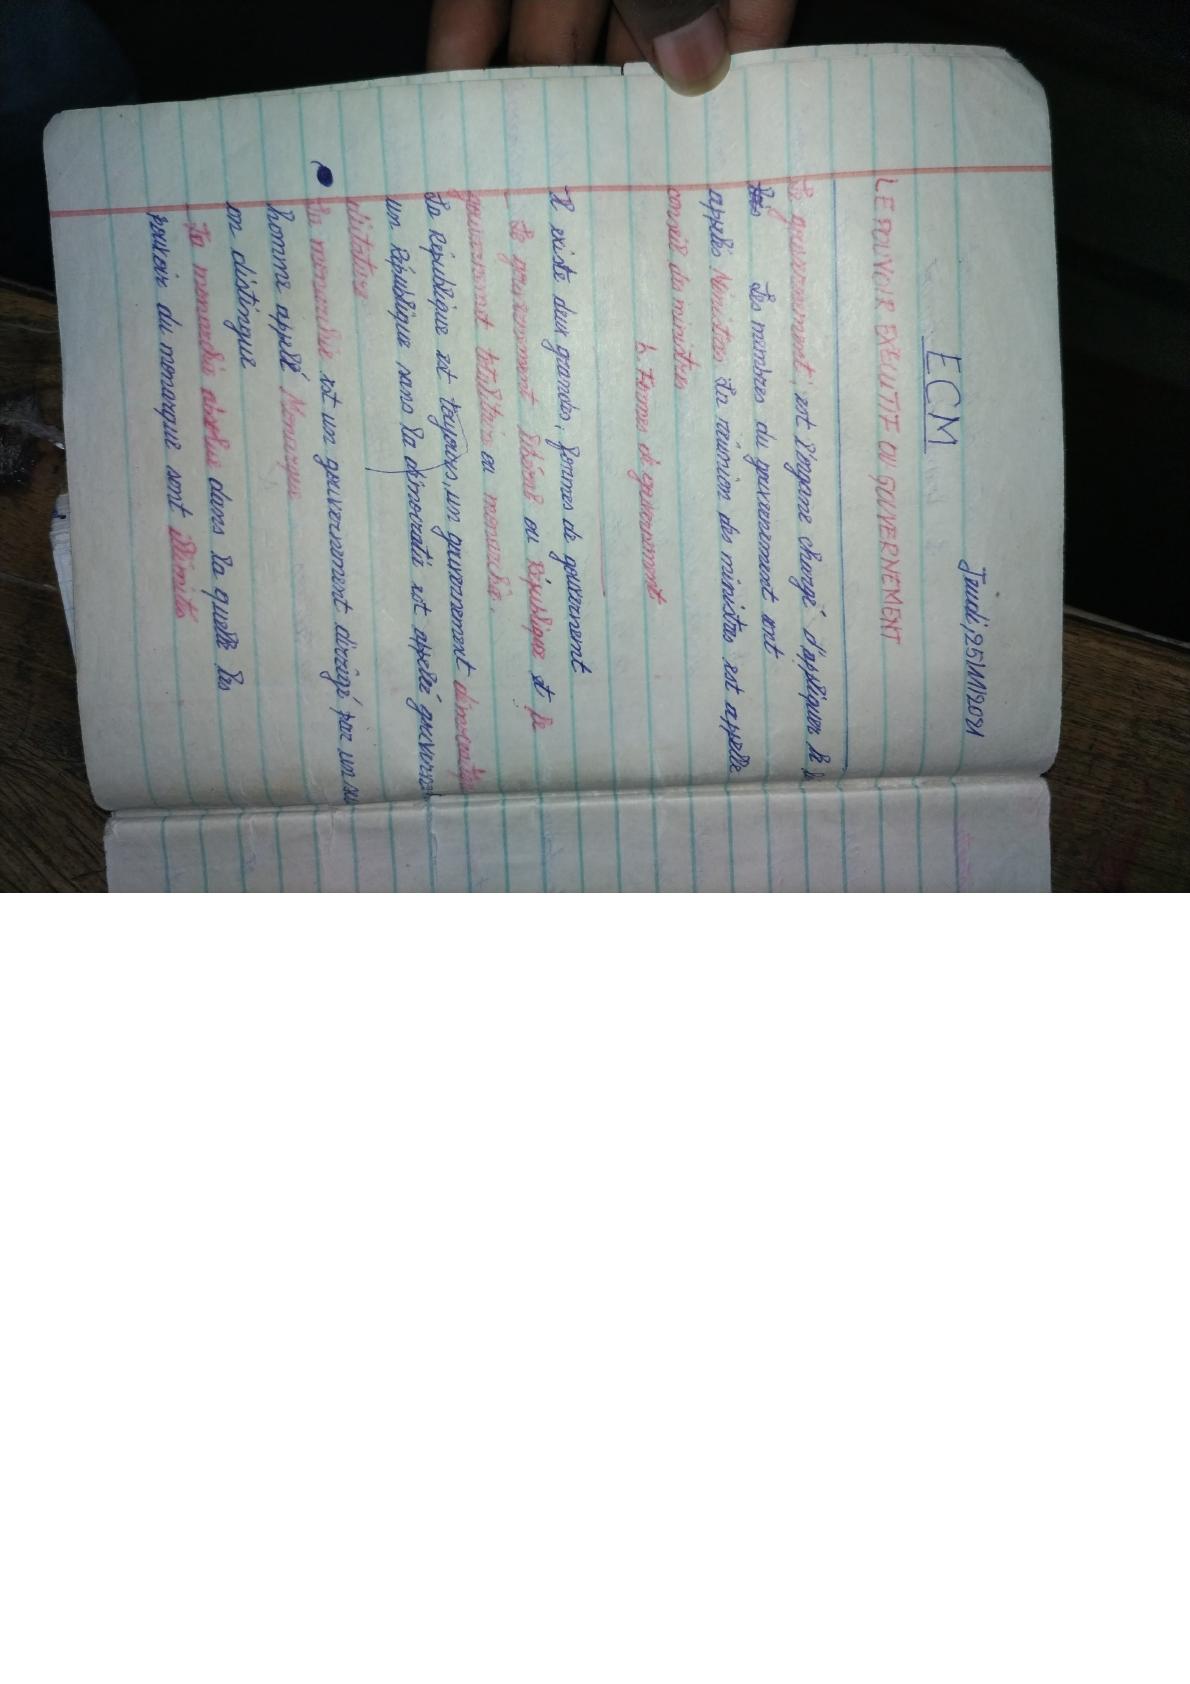 Jeudi, 25/11/2021
ECM
LE POUVOIR EXECUTIF OU GOUVERNEMENT
Le gouvernement, est l'organe chargé d'appliquer le
Les membres du gouvernement sont
appelés Ministres la réunion des ministres est appelle
conseil des ministres
b. Formes de gouvernement
Il existe deux grandes, formes de gouvernement
Le gouvernement libéral ou République et le
gouvernement totalitaire ou monarchie.
La République est toujours, un gouvernement
un République sans la démocratie est appelé
dictature
La monarchie est un gouvernement dirigé par un
homme appelé Monarque
on distingue
La monarchie absolue dans la quelle les
pouvoir du monarque sont illimités